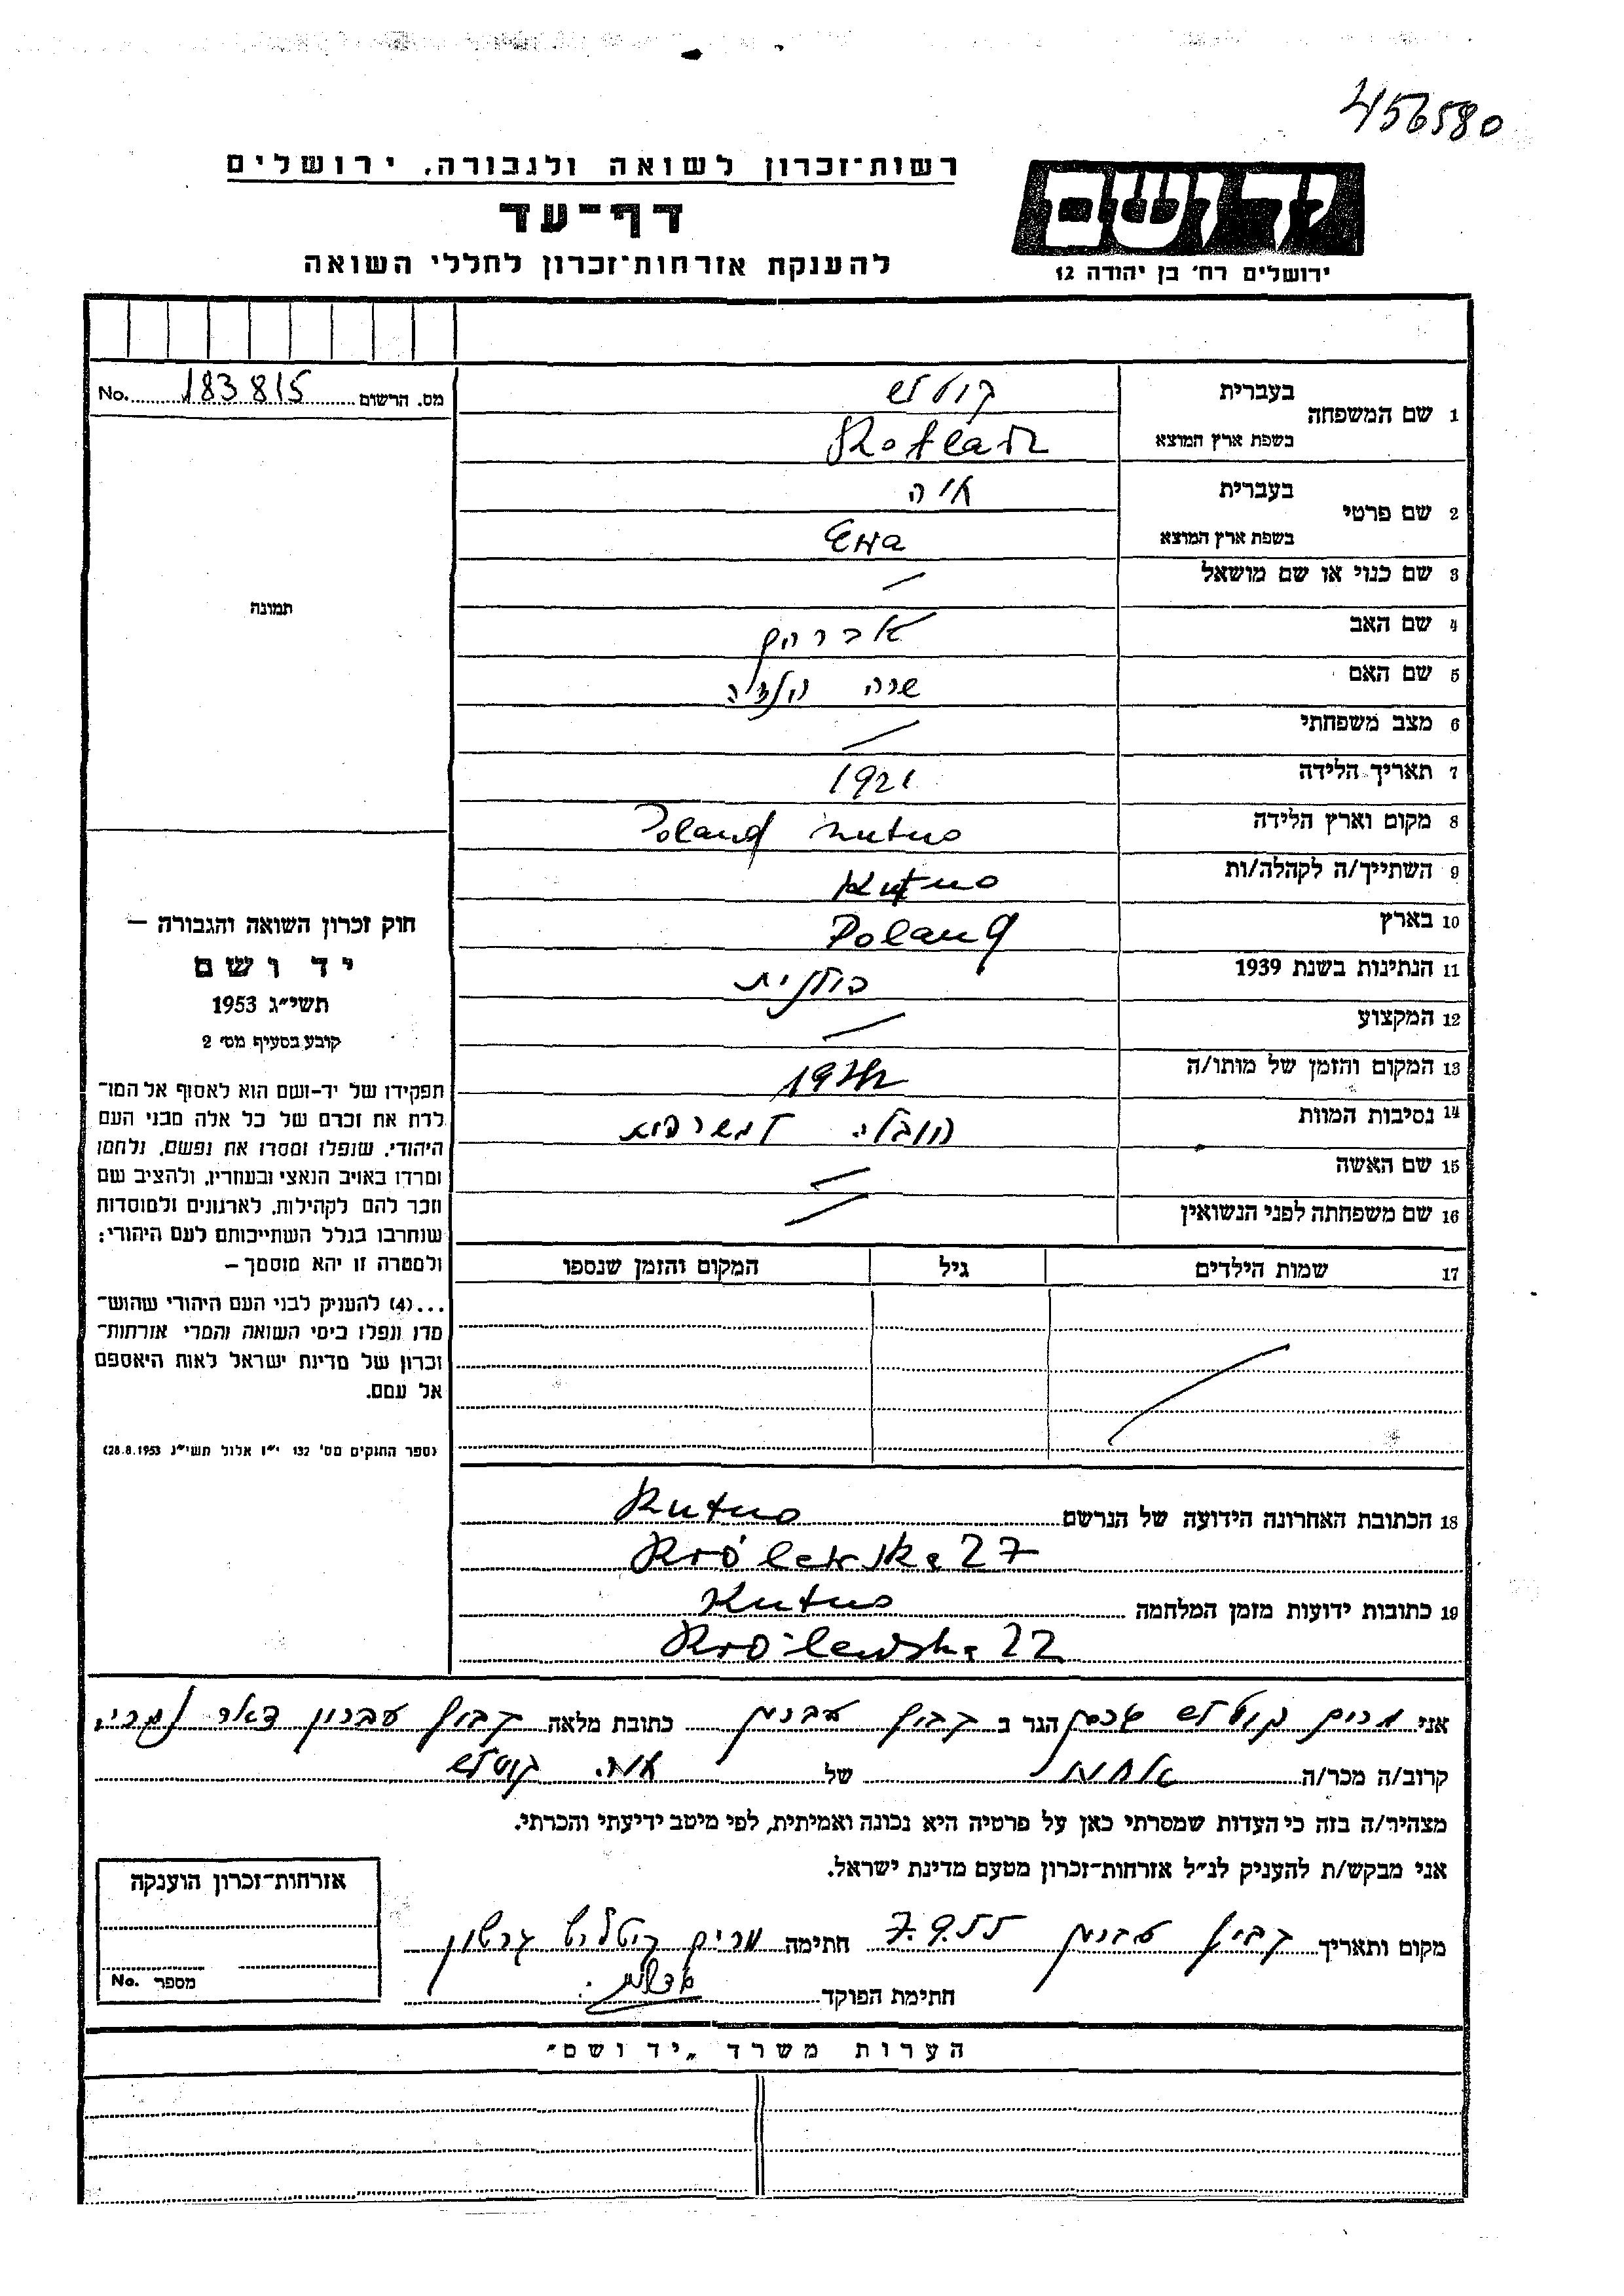 456580
רשות־זכרון לשואה ולגבורה, ירושלים
ידושם
דף־עד
להענקת אזרחות־זכרון לחללי השואה
ירושלים רח' בן יהודה 12
מס. הרשום 183815 No.
1 שם המשפחה בעברית
בשפת ארץ המוצא
2 שם פרטי בעברית
בשפת ארץ המוצא
3 שם כנוי או שם מושאל
4 שם האב אברהם
5 שם האם שרה
6 מצב משפחתי
7 תאריך הלידה 1921
8 מקום וארץ הלידה Poland Kutno
9 השתייך/ה לקהלה/ות Kutno
10 בארץ Poland
11 הנתינות בשנת 1939 פולנית
12 המקצוע
13 המקום והזמן של מותו/ה
14 נסיבות המוות הובלה למשרפות
15 שם האשה
16 שם משפחתה לפני הנשואין
17 שמות הילדים גיל המקום והזמן שנספו
תמונה
חוק זכרון השואה והגבורה –
יד ושם
תשי״ג 1953
קובע בסעיף מס׳ 2
תפקידו של יד-ושם הוא לאסוף אל המו־
לדת את זכרם של כל אלה מבני העם
היהודי, שנפלו ומסרו את נפשם, נלחמו
ומרדו באויב הנאצי ובעוזריו, ולהציב שם
וזכר להם לקהילות, לארגונים ולמוסדות
שנחרבו בגלל השתייכותם לעם היהודי;
ולמטרה זו יהא מוסמך –
...(4) להעניק לבני העם היהודי שהוש־
מדו ונפלו בימי השואה והמרי אזרחות־
זכרון של מדינת ישראל לאות היאספם
אל עמם.
(ספר החוקים מס' 132 י״ז אלול תשי״ג 28.8.1953)
18 הכתובת האחרונה הידועה של הנרשם Kutno
Królewska 27
19 כתובות ידועות מזמן המלחמה Kutno
Królewska 22
אני מרים הגר ב קבוץ עברון כתובת מלאה קבוץ עברון דאר נהריה
קרוב/ה מכר/ה אחות של
מצהיר/ה בזה כי העדות שמסרתי כאן על פרטיה היא נכונה ואמיתית, לפי מיטב ידיעתי והכרתי.
אני מבקש/ת להעניק לנ״ל אזרחות־זכרון מטעם מדינת ישראל.
אזרחות־זכרון הוענקה
מספר No.
מקום ותאריך קבוץ עברון 7.9.55 חתימה מרים
חתימת הפוקד
הערות משרד „יד ושם״